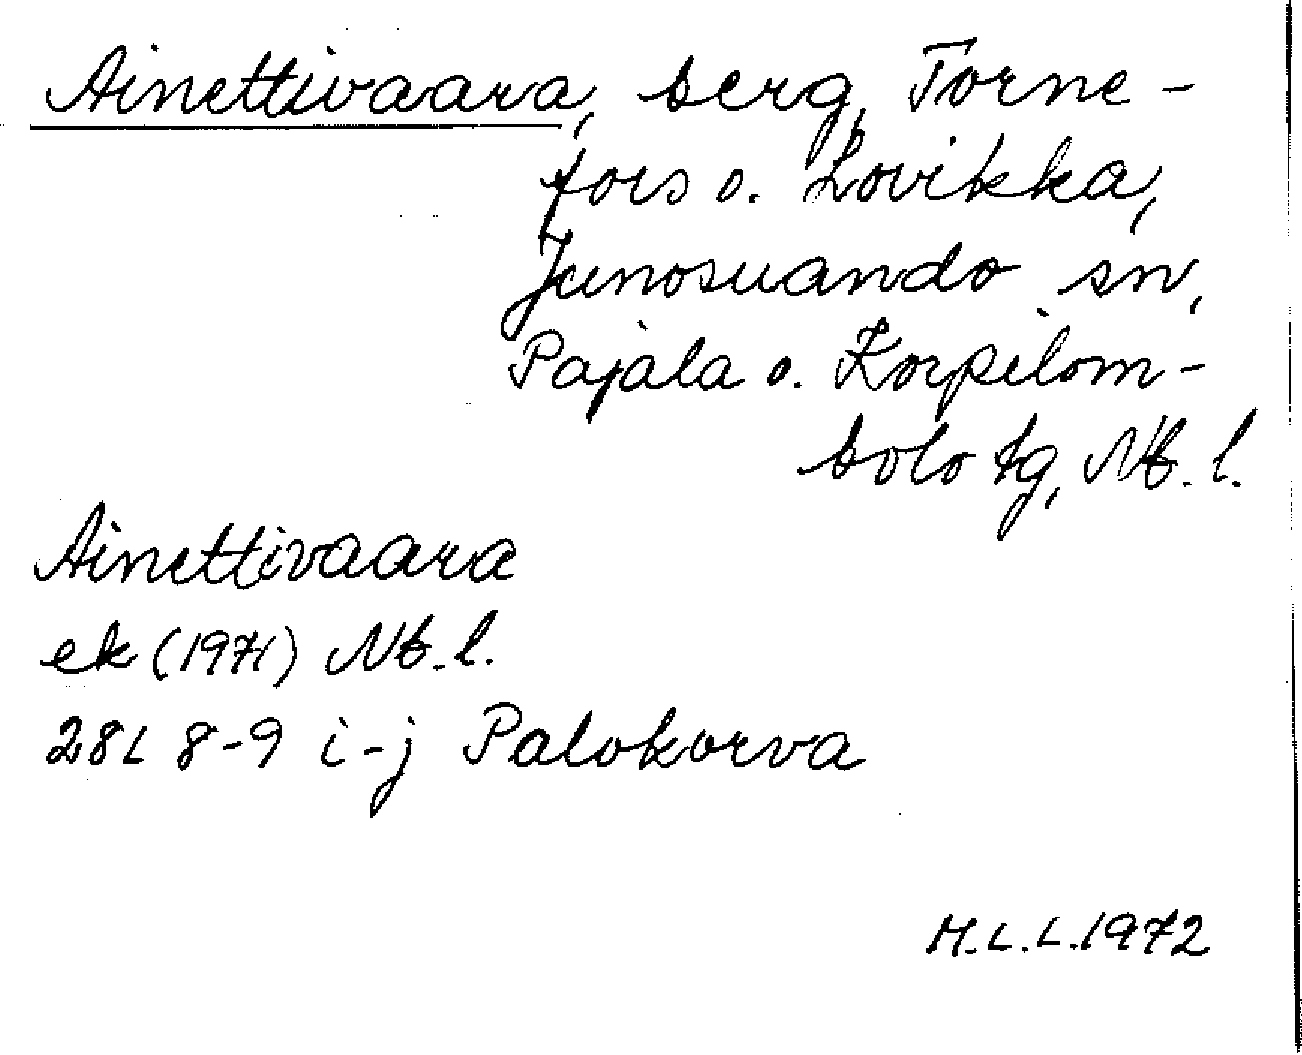 Ainettivaara, berg, Torne-
fors o. Lovikka,
Junosuando sn,
Pajala o. Korpilom-
bolo tg, Nb. l.
Ainettivaara
ek (1971) Nb. l.
28L 8-9 i-j Palokorva
H.L.L. 1972